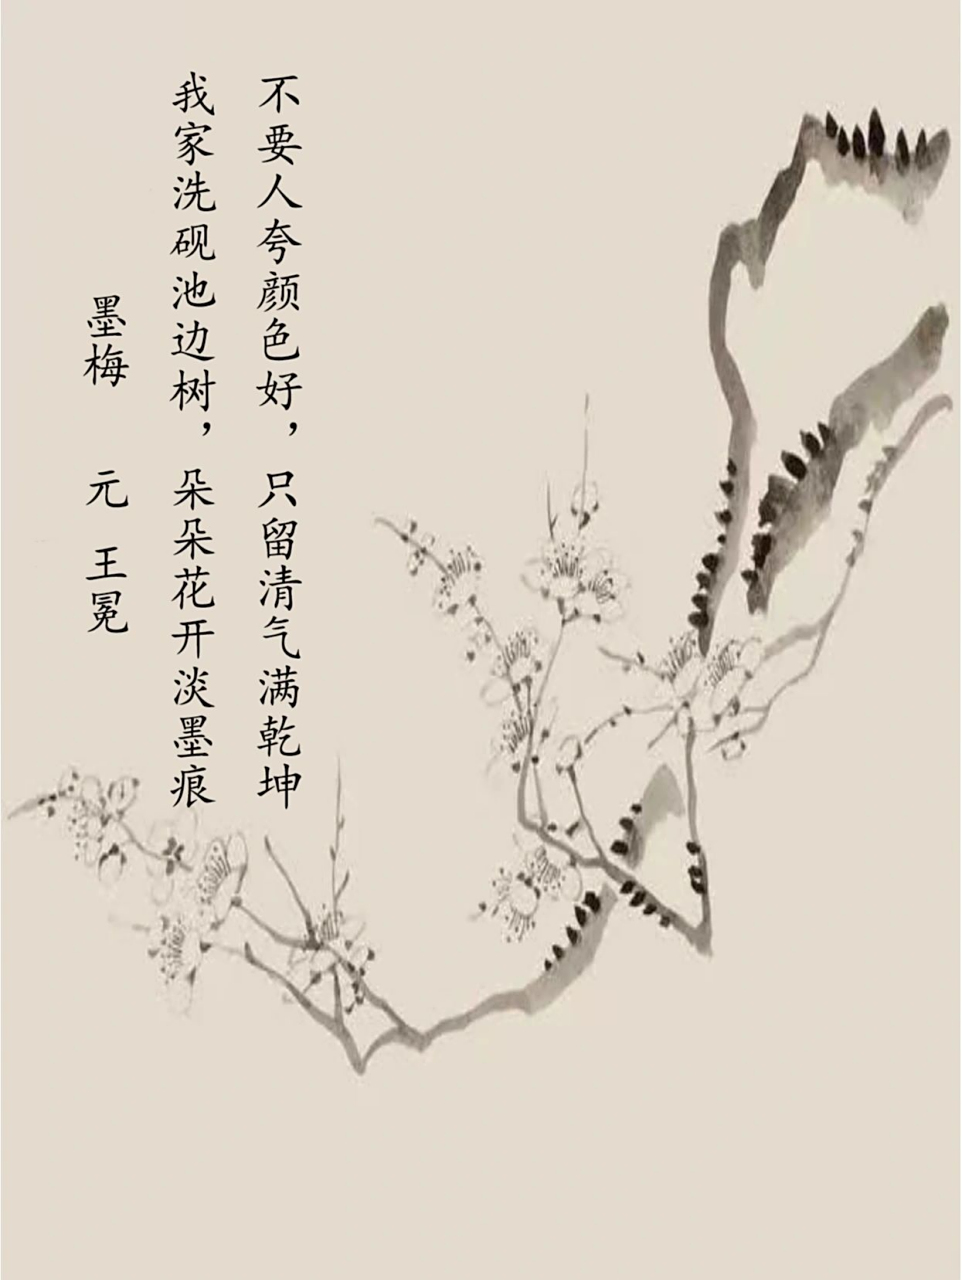 墨梅 元 王冕
我家洗砚池边树，朵朵花开淡墨痕
不要人夸颜色好，只留清气满乾坤